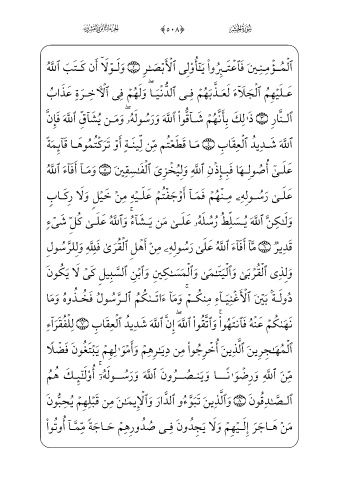 سُورَةُ الحَشْرِ ﴿٥٠٨﴾ الجُزْءُ الثَّامِنُ وَالعِشْرُونَ
ٱلْمُؤْمِنِينَ فَٱعْتَبِرُوا۟ يَٰٓأُو۟لِى ٱلْأَبْصَٰرِ ۝ وَلَوْلَآ أَن كَتَبَ ٱللَّهُ
عَلَيْهِمُ ٱلْجَلَآءَ لَعَذَّبَهُمْ فِى ٱلدُّنْيَا ۖ وَلَهُمْ فِى ٱلْءَاخِرَةِ عَذَابُ
ٱلنَّارِ ۝ ذَٰلِكَ بِأَنَّهُمْ شَآقُّوا۟ ٱللَّهَ وَرَسُولَهُۥ ۖ وَمَن يُشَآقِّ ٱللَّهَ فَإِنَّ
ٱللَّهَ شَدِيدُ ٱلْعِقَابِ ۝ مَا قَطَعْتُم مِّن لِّينَةٍ أَوْ تَرَكْتُمُوهَا قَآئِمَةً
عَلَىٰٓ أُصُولِهَا فَبِإِذْنِ ٱللَّهِ وَلِيُخْزِىَ ٱلْفَٰسِقِينَ ۝ وَمَآ أَفَآءَ ٱللَّهُ
عَلَىٰ رَسُولِهِۦ مِنْهُمْ فَمَآ أَوْجَفْتُمْ عَلَيْهِ مِنْ خَيْلٍ وَلَا رِكَابٍ
وَلَٰكِنَّ ٱللَّهَ يُسَلِّطُ رُسُلَهُۥ عَلَىٰ مَن يَشَآءُ ۚ وَٱللَّهُ عَلَىٰ كُلِّ شَىْءٍ
قَدِيرٌ ۝ مَّآ أَفَآءَ ٱللَّهُ عَلَىٰ رَسُولِهِۦ مِنْ أَهْلِ ٱلْقُرَىٰ فَلِلَّهِ وَلِلرَّسُولِ
وَلِذِى ٱلْقُرْبَىٰ وَٱلْيَتَٰمَىٰ وَٱلْمَسَٰكِينِ وَٱبْنِ ٱلسَّبِيلِ كَىْ لَا يَكُونَ
دُولَةًۢ بَيْنَ ٱلْأَغْنِيَآءِ مِنكُمْ ۚ وَمَآ ءَاتَىٰكُمُ ٱلرَّسُولُ فَخُذُوهُ وَمَا
نَهَىٰكُمْ عَنْهُ فَٱنتَهُوا۟ ۚ وَٱتَّقُوا۟ ٱللَّهَ ۖ إِنَّ ٱللَّهَ شَدِيدُ ٱلْعِقَابِ ۝ لِلْفُقَرَآءِ
ٱلْمُهَٰجِرِينَ ٱلَّذِينَ أُخْرِجُوا۟ مِن دِيَٰرِهِمْ وَأَمْوَٰلِهِمْ يَبْتَغُونَ فَضْلًا
مِّنَ ٱللَّهِ وَرِضْوَٰنًا وَيَنصُرُونَ ٱللَّهَ وَرَسُولَهُۥٓ ۚ أُو۟لَٰٓئِكَ هُمُ
ٱلصَّٰدِقُونَ ۝ وَٱلَّذِينَ تَبَوَّءُو ٱلدَّارَ وَٱلْإِيمَٰنَ مِن قَبْلِهِمْ يُحِبُّونَ
مَنْ هَاجَرَ إِلَيْهِمْ وَلَا يَجِدُونَ فِى صُدُورِهِمْ حَاجَةً مِّمَّآ أُوتُوا۟